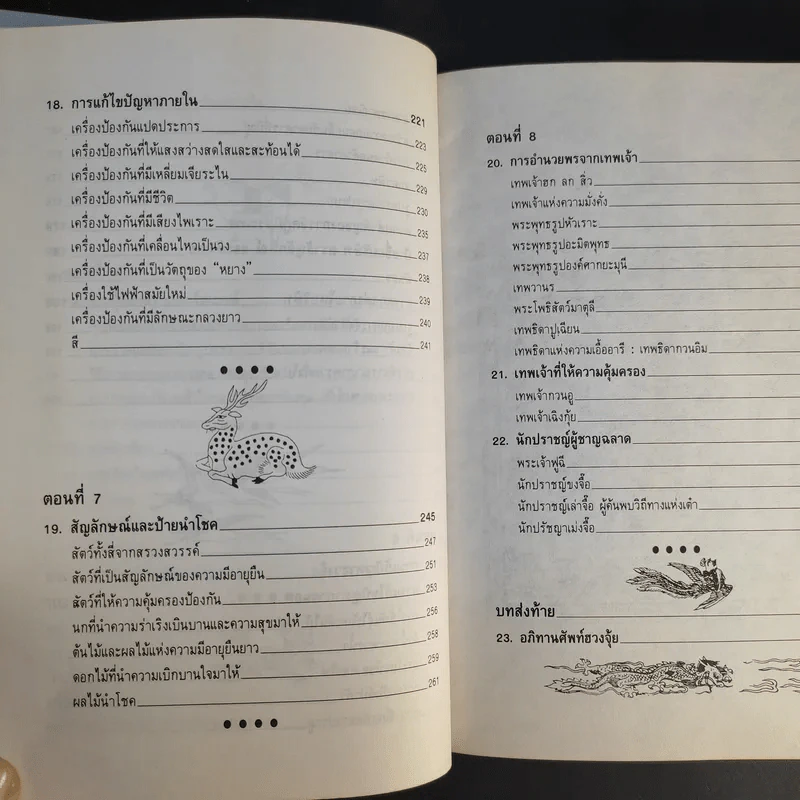 18. การแก้ไขปัญหาภายใน 221
เครื่องป้องกันแปดประการ 223
เครื่องป้องกันที่ให้แสงสว่างสดใสและสะท้อนได้ 225
เครื่องป้องกันที่มีเหลี่ยมเจียระไน 229
เครื่องป้องกันที่มีชีวิต 230
เครื่องป้องกันที่มีเสียงไพเราะ 235
เครื่องป้องกันที่เคลื่อนไหวเป็นวง 237
เครื่องป้องกันที่เป็นวัตถุของ “หยาง” 238
เครื่องใช้ไฟฟ้าสมัยใหม่ 239
เครื่องป้องกันที่มีลักษณะกลวงยาว 240
สี 241
ตอนที่ 7
19. สัญลักษณ์และป้ายนำโชค 245
สัตว์ทั้งสี่จากสรวงสวรรค์ 247
สัตว์ที่เป็นสัญลักษณ์ของความมีอายุยืน 251
สัตว์ที่ให้ความคุ้มครองป้องกัน 253
นกที่นำความร่าเริงเบิกบานและความสุขมาให้ 256
ต้นไม้และผลไม้แห่งความมีอายุยืนยาว 258
ดอกไม้ที่นำความเบิกบานใจมาให้ 259
ผลไม้นำโชค 261
ตอนที่ 8
20. การอำนวยพรจากเทพเจ้า
เทพเจ้าฮก ลก สิ่ว
เทพเจ้าแห่งความมั่งคั่ง
พระพุทธรูปหัวเราะ
พระพุทธรูปอะมิตพุทธ
พระพุทธรูปองค์ศากยะมุนี
เทพวานร
พระโพธิสัตว์มาตุลี
เทพธิดาปูเฉียน
เทพธิดาแห่งความเอื้ออารี : เทพธิดากวนอิม
21. เทพเจ้าที่ให้ความคุ้มครอง
เทพเจ้ากวนอู
เทพเจ้าเฉิงกุ้ย
22. นักปราชญ์ผู้ชาญฉลาด
พระเจ้าฟูฉี
นักปราชญ์ขงจื๊อ
นักปราชญ์เล่าจื๊อ ผู้ค้นพบวิถีทางแห่งเต๋า
นักปรัชญาเม่งจื๊อ
บทส่งท้าย
23. อภิทานศัพท์ฮวงจุ้ย